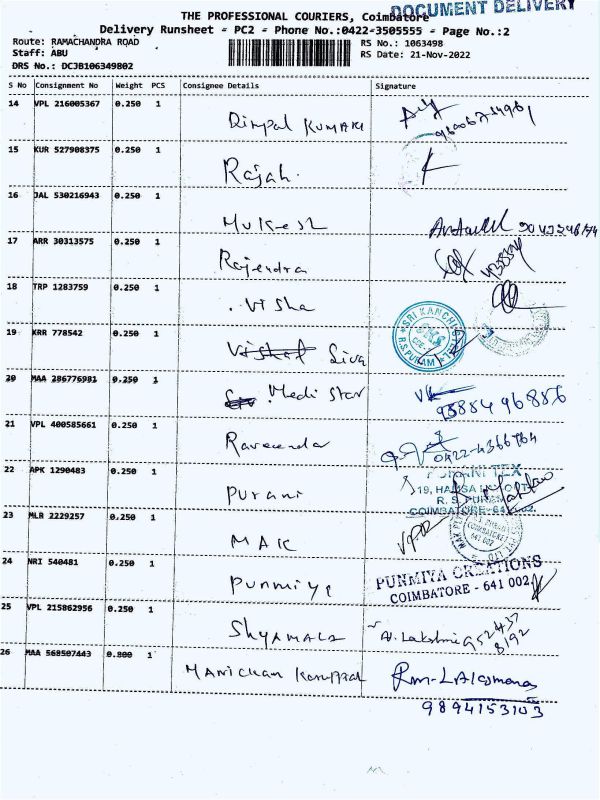 DOCUMENT DELIVERY
THE PROFESSIONAL COURIERS, Coimbatore
Delivery Runsheet - PC2 - Phone No.:0422-3505555 - Page No.:2
Route: RAMACHANDRA ROAD
Staff: ABU
DRS No.: DCJB106349802
RS No.: 1063498
RS Date: 21-Nov-2022
S No Consignment No Weight PCS Consignee Details Signature
14 VPL 216005367 0.250 1 Dimpal Kumari
15 KUR 527908375 0.250 1 Rajah.
16 JAL 530216943 0.250 1 Mukesh
17 ARR 30313575 0.250 1 Rajendra
18 TRP 1283759 0.250 1 Visha
19 KRR 778542 0.250 1 Vishal Siva
SRI KANCHI
R.S.PURAM
20 MAA 286776981 0.250 1 Medi Star
98884 96886
21 VPL 400585661 0.250 1 Raveendar
0422-4366764
22 APK 1290483 0.250 1 Purani
PURANI TEX
R. S. PURAM
COIMBATORE-641 002.
23 MLR 2229257 0.250 1 MAK
24 NRI 540481 0.250 1 Punmiya
PUNMIYA CREATIONS
COIMBATORE - 641 002
25 VPL 215862956 0.250 1 Shyamala Al. Lakshmi 952437
8192
26 MAA 568507443 0.800 1 Manichan Karuppal
9894153103